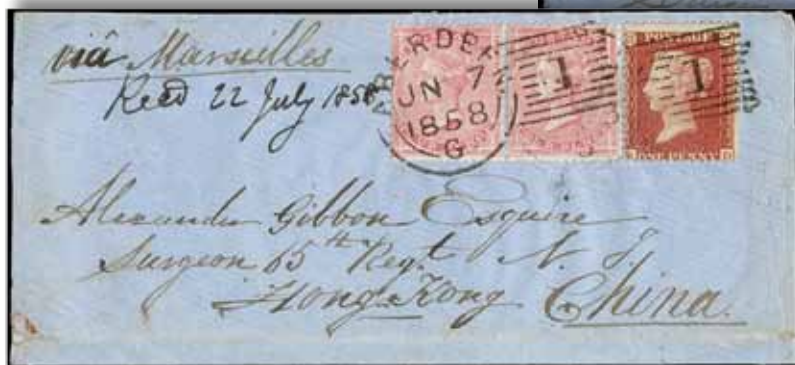 viâ Marseilles
Recd 22 July 1858
ABERDEEN
JN 7
1858
G
1
POSTAGE
1
ONE PENNY
Alexander Gibbon Esquire
Surgeon 65th Regt N. I.
Hong Kong China.